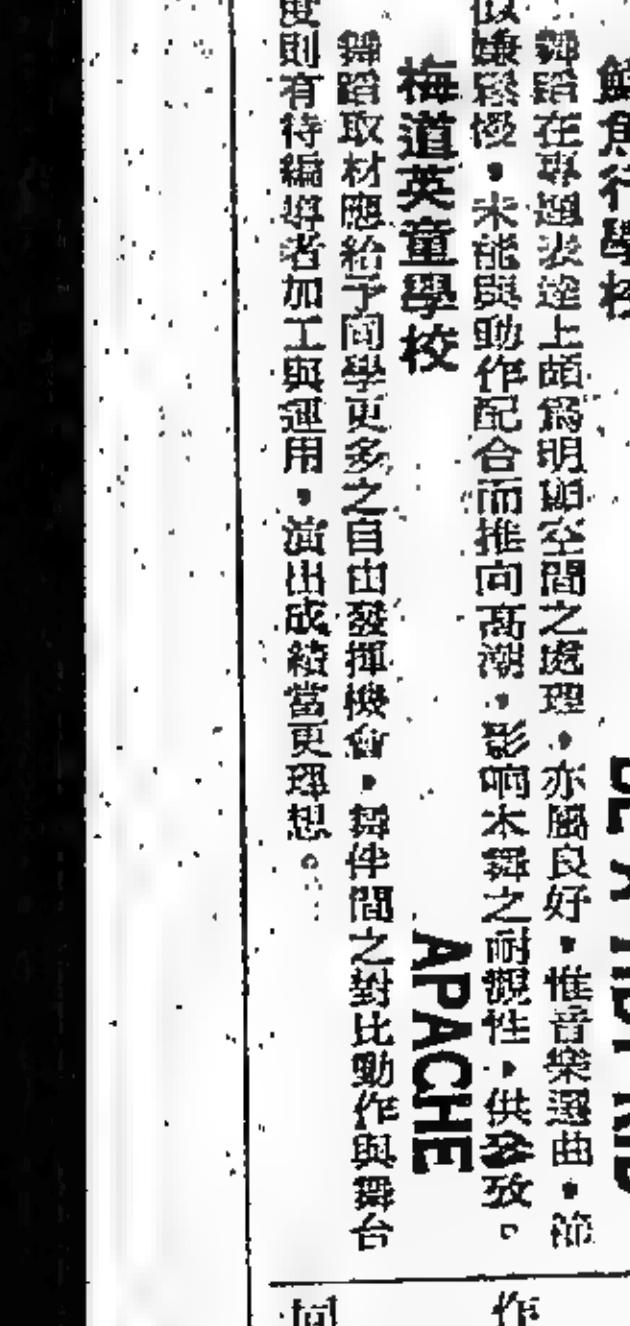 鮮魚行學校
BE A TIDY KID
舞蹈在專題表達上頗為明顯空間之處理，亦屬良好，惟音樂選曲，節
似嫌鬆慢，未能與動作配合而推向高潮，影响本舞之耐觀性，供參攷。
梅道英童學校
APACHE
舞蹈取材應給予同學更多之自由發揮機會，舞伴間之對比動作與舞台
度則有待編導者加工與運用，演出成績當更理想。
作